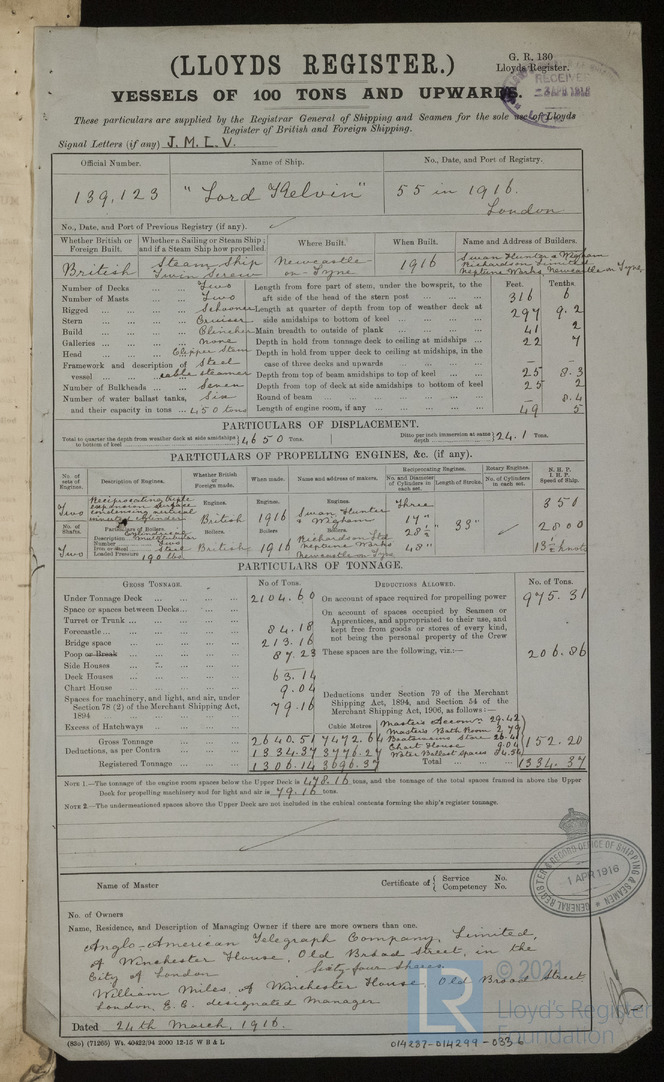 G. R. 130
Lloyds Register.
(LLOYDS REGISTER.)
RECEIVED
3 APR 1916
VESSELS OF 100 TONS AND UPWARDS.
These particulars are supplied by the Registrar General of Shipping and Seamen for the sole use of Lloyds
Register of British and Foreign Shipping.
Signal Letters (if any) J. M. L. V.
Official Number. Name of Ship. No., Date, and Port of Registry.
139,123 "Lord Kelvin" 55 in 1916.
London
No., Date, and Port of Previous Registry (if any).
Whether British or Foreign Built. Whether a Sailing or Steam Ship; and if a Steam Ship how propelled. Where Built. When Built. Name and Address of Builders.
British Steam Ship Twin Screw Newcastle on-Tyne 1916 Swan Hunter & Wigham Richardson Limited Neptune Works, Newcastle on Tyne
Feet. Tenths.
Number of Decks Two Length from fore part of stem, under the bowsprit, to the
Number of Masts Two aft side of the head of the stern post 316 6
Rigged Schooner Length at quarter of depth from top of weather deck at
Stern Cruiser side amidships to bottom of keel 297 9.2
Build Clincher Main breadth to outside of plank 41 2
Galleries None Depth in hold from tonnage deck to ceiling at midships 22 7
Head Clipper Stem Depth in hold from upper deck to ceiling at midships, in the
Framework and description of Steel case of three decks and upwards — —
vessel cable steamer Depth from top of beam amidships to top of keel 25 8.3
Number of Bulkheads Seven Depth from top of deck at side amidships to bottom of keel 25 2
Number of water ballast tanks, Six Round of beam — 8.4
and their capacity in tons 450 tons Length of engine room, if any 49 5
PARTICULARS OF DISPLACEMENT.
Total to quarter the depth from weather deck at side amidships to bottom of keel 4650 Tons. Ditto per inch immersion at same depth 24.1 Tons.
PARTICULARS OF PROPELLING ENGINES, &c. (if any).
No. of sets of Engines. Description of Engines. Whether British or Foreign made. When made. Name and address of makers. Reciprocating Engines. Rotary Engines. N. H. P. I. H. P. Speed of Ship.
No. and Diameter of Cylinders in each set. Length of Stroke. No. of Cylinders in each set.
Two Reciprocating triple expansion surface condensing vertical inverted cylinder Engines. British Engines. 1916 Engines. Swan Hunter & Wigham Three 17" 28½" 48" 33" 351 2800 13½ knots
No. of Shafts. Two Particulars of Boilers Description Cylindrical Multitubular Number Two Iron or Steel Steel Loaded Pressure 190 lbs Boilers. British Boilers 1916 Boilers. Richardson Ltd Neptune Works Newcastle-on-Tyne
PARTICULARS OF TONNAGE.
GROSS TONNAGE. No of Tons. DEDUCTIONS ALLOWED. No. of Tons.
Under Tonnage Deck 2104.60 On account of space required for propelling power 975.31
Space or spaces between Decks On account of spaces occupied by Seamen or
Turret or Trunk Apprentices, and appropriated to their use, and
Forecastle 84.18 kept free from goods or stores of every kind,
Bridge space 213.16 not being the personal property of the Crew
Poop or Break 87.23 These spaces are the following, viz:— 206.86
Side Houses
Deck Houses 63.14
Chart House 9.04 Deductions under Section 79 of the Merchant
Spaces for machinery, and light, and air, under Shipping Act, 1894, and Section 54 of the
Section 78 (2) of the Merchant Shipping Act, 1894 79.16 Merchant Shipping Act, 1906, as follows:—
Excess of Hatchways Cubic Metres Master's Accomn. 29.42
Master's Bath Room 2.79
Gross Tonnage 2640.51 7472.64 Boatswains Store 26.41
Deductions, as per Contra 1334.37 3776.27 Chart House 9.04 152.20
Registered Tonnage 1306.14 3696.37 Water Ballast Spaces 84.54
Total 1334.37
NOTE 1.—The tonnage of the engine room spaces below the Upper Deck is 478.16 tons, and the tonnage of the total spaces framed in above the Upper
Deck for propelling machinery and for light and air is 79.16 tons.
NOTE 2.—The undermentioned spaces above the Upper Deck are not included in the cubical contents forming the ship's register tonnage.
GENERAL REGISTER & RECORD OFFICE OF SHIPPING & SEAMEN
1 APR 1916
Name of Master Certificate of { Service No. Competency No.
No. of Owners
Name, Residence, and Description of Managing Owner if there are more owners than one.
Anglo-American Telegraph Company, Limited,
of Winchester House, Old Broad Street, in the
City of London Sixty-four Shares.
William Miles, of Winchester House, Old Broad Street
London, E.C. designated manager
Dated 24th March, 1916.
(83o) (71265) Wt. 40422/94 2000 12-15 W B & L
014287-014299-0336
© 2021
LR
Lloyd's Register
Foundation